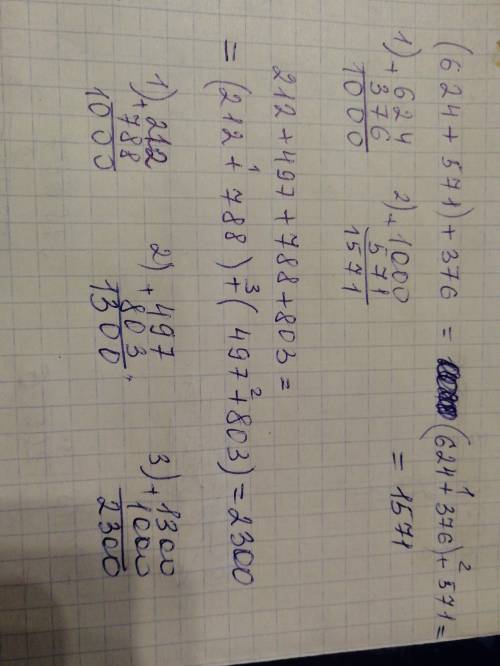 (624 + 571) + 376 = (624 + 376) + 571 =
1 2
1) + 624 2) + 1000 = 1571
376 571
1000 1571
212 + 497 + 788 + 803 =
1 3 2
= (212 + 788) + (497 + 803) = 2300
1) + 212 2) + 497 3) + 1300
788 803 1000
1000 1300 2300